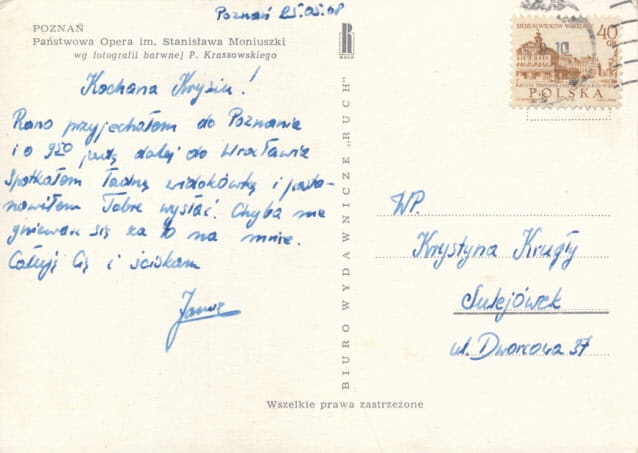 Poznań 25.05.68
POZNAŃ
Państwowa Opera im. Stanisława Moniuszki
wg fotografii barwnej P. Krassowskiego
Kochana Krysiu!
Rano przyjechałem do Poznania
i o 920 jadę dalej do Wrocławia
Spotkałem ładną widokówkę i posta-
nowiłem Tobie wysłać. Chyba nie
gniewasz się za to na mnie.
Całuję Cię i ściskam
Janusz
BIURO WYDAWNICZE „RUCH”
R
RUCH
40
GR
POLSKA
10
WP.
Krystyna Krugły
Sulejówek
ul. Dworcowa 37
Wszelkie prawa zastrzeżone